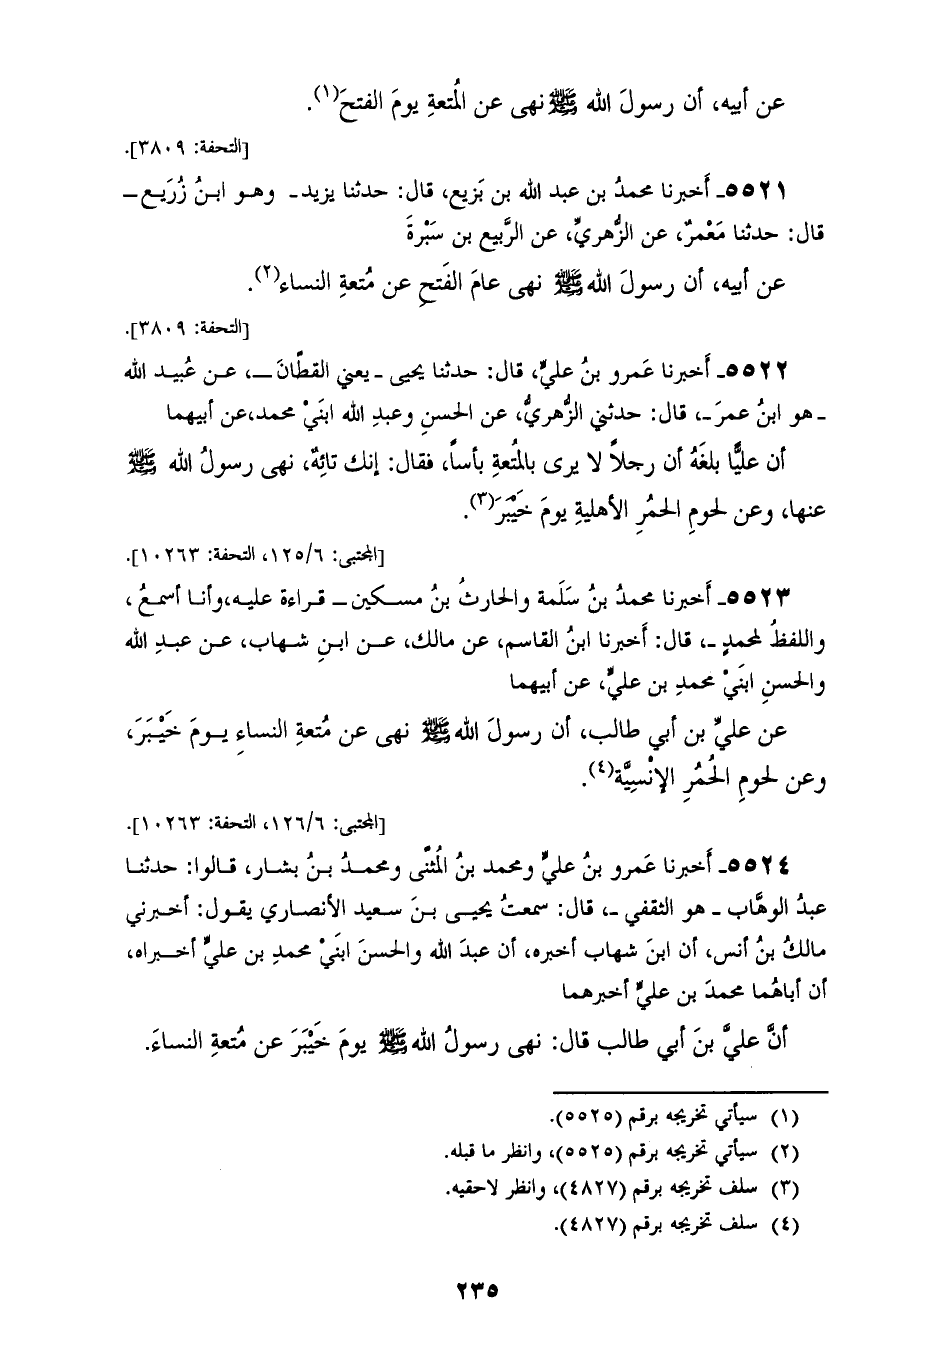 عن أبيه، أن رسولَ الله ﷺ نهى عن المُتعةِ يومَ الفتحَ(١).
[التحفة: ٣٨٠٩].
٥٥٢١ـ أَخبرنا محمدُ بن عبد الله بن بَزيع، قال: حدثنا يزيد ـ وهو ابنُ زُرَيع ـ
قال: حدثنا مَعْمرٌ، عن الزُّهريِّ، عن الرَّبيع بن سَبْرةَ
عن أبيه، أن رسولَ الله ﷺ نهى عامَ الفَتحِ عن مُتعةِ النساء(٢).
[التحفة: ٣٨٠٩].
٥٥٢٢ـ أَخبرنا عَمرو بنُ عليٍّ، قال: حدثنا يحيى ـ يعني القطَّانَ ـ، عن عُبيد الله
ـ هو ابنُ عمرَ ـ، قال: حدثني الزُّهريُّ، عن الحسنِ وعبدِ الله ابنَيْ محمد، عن أبيهما
أن عليًّا بلغَهُ أن رجلاً لا يرى بالمُتعةِ بأساً، فقال: إنك تائِهٌ، نهى رسولُ الله ﷺ
عنها، وعن لحومِ الحمُرِ الأهليةِ يومَ خَيْبَرَ(٣).
[المجتبى: ١٢٥/٦، التحفة: ١٠٢٦٣].
٥٥٢٣ـ أَخبرنا محمدُ بنُ سَلَمة والحارثُ بنُ مسكين ـ قراءة عليه، وأنا أسمعُ،
واللفظُ لمحمدٍ ـ، قال: أَخبرنا ابنُ القاسم، عن مالك، عن ابنِ شهاب، عن عبدِ الله
والحسنِ ابنَيْ محمدِ بن عليٍّ، عن أبيهما
عن عليِّ بن أبي طالب، أن رسولَ الله ﷺ نهى عن مُتعةِ النساءِ يومَ خَيْبَرَ،
وعن لحومِ الحُمُرِ الإنْسِيَّة(٤).
[المجتبى: ١٢٦/٦، التحفة: ١٠٢٦٣].
٥٥٢٤ـ أَخبرنا عَمرو بنُ عليٍّ ومحمد بنُ المُثنَّى ومحمدُ بنُ بشار، قالوا: حدثنا
عبدُ الوهَّاب ـ هو الثقفي ـ، قال: سمعتُ يحيى بنَ سعيد الأنصاري يقول: أخبرني
مالكُ بنُ أنس، أن ابنَ شهاب أخبره، أن عبدَ الله والحسنَ ابنَيْ محمدِ بن عليٍّ أخبراه،
أن أباهُما محمدَ بن عليٍّ أخبرهما
أنَّ عليَّ بنَ أبي طالب قال: نهى رسولُ الله ﷺ يومَ خَيْبَرَ عن مُتعةِ النساءَ.
(١) سيأتي تخريجه برقم (٥٥٢٥).
(٢) سيأتي تخريجه برقم (٥٥٢٥)، وانظر ما قبله.
(٣) سلف تخريجه برقم (٤٨٢٧)، وانظر لاحقيه.
(٤) سلف تخريجه برقم (٤٨٢٧).
٢٣٥